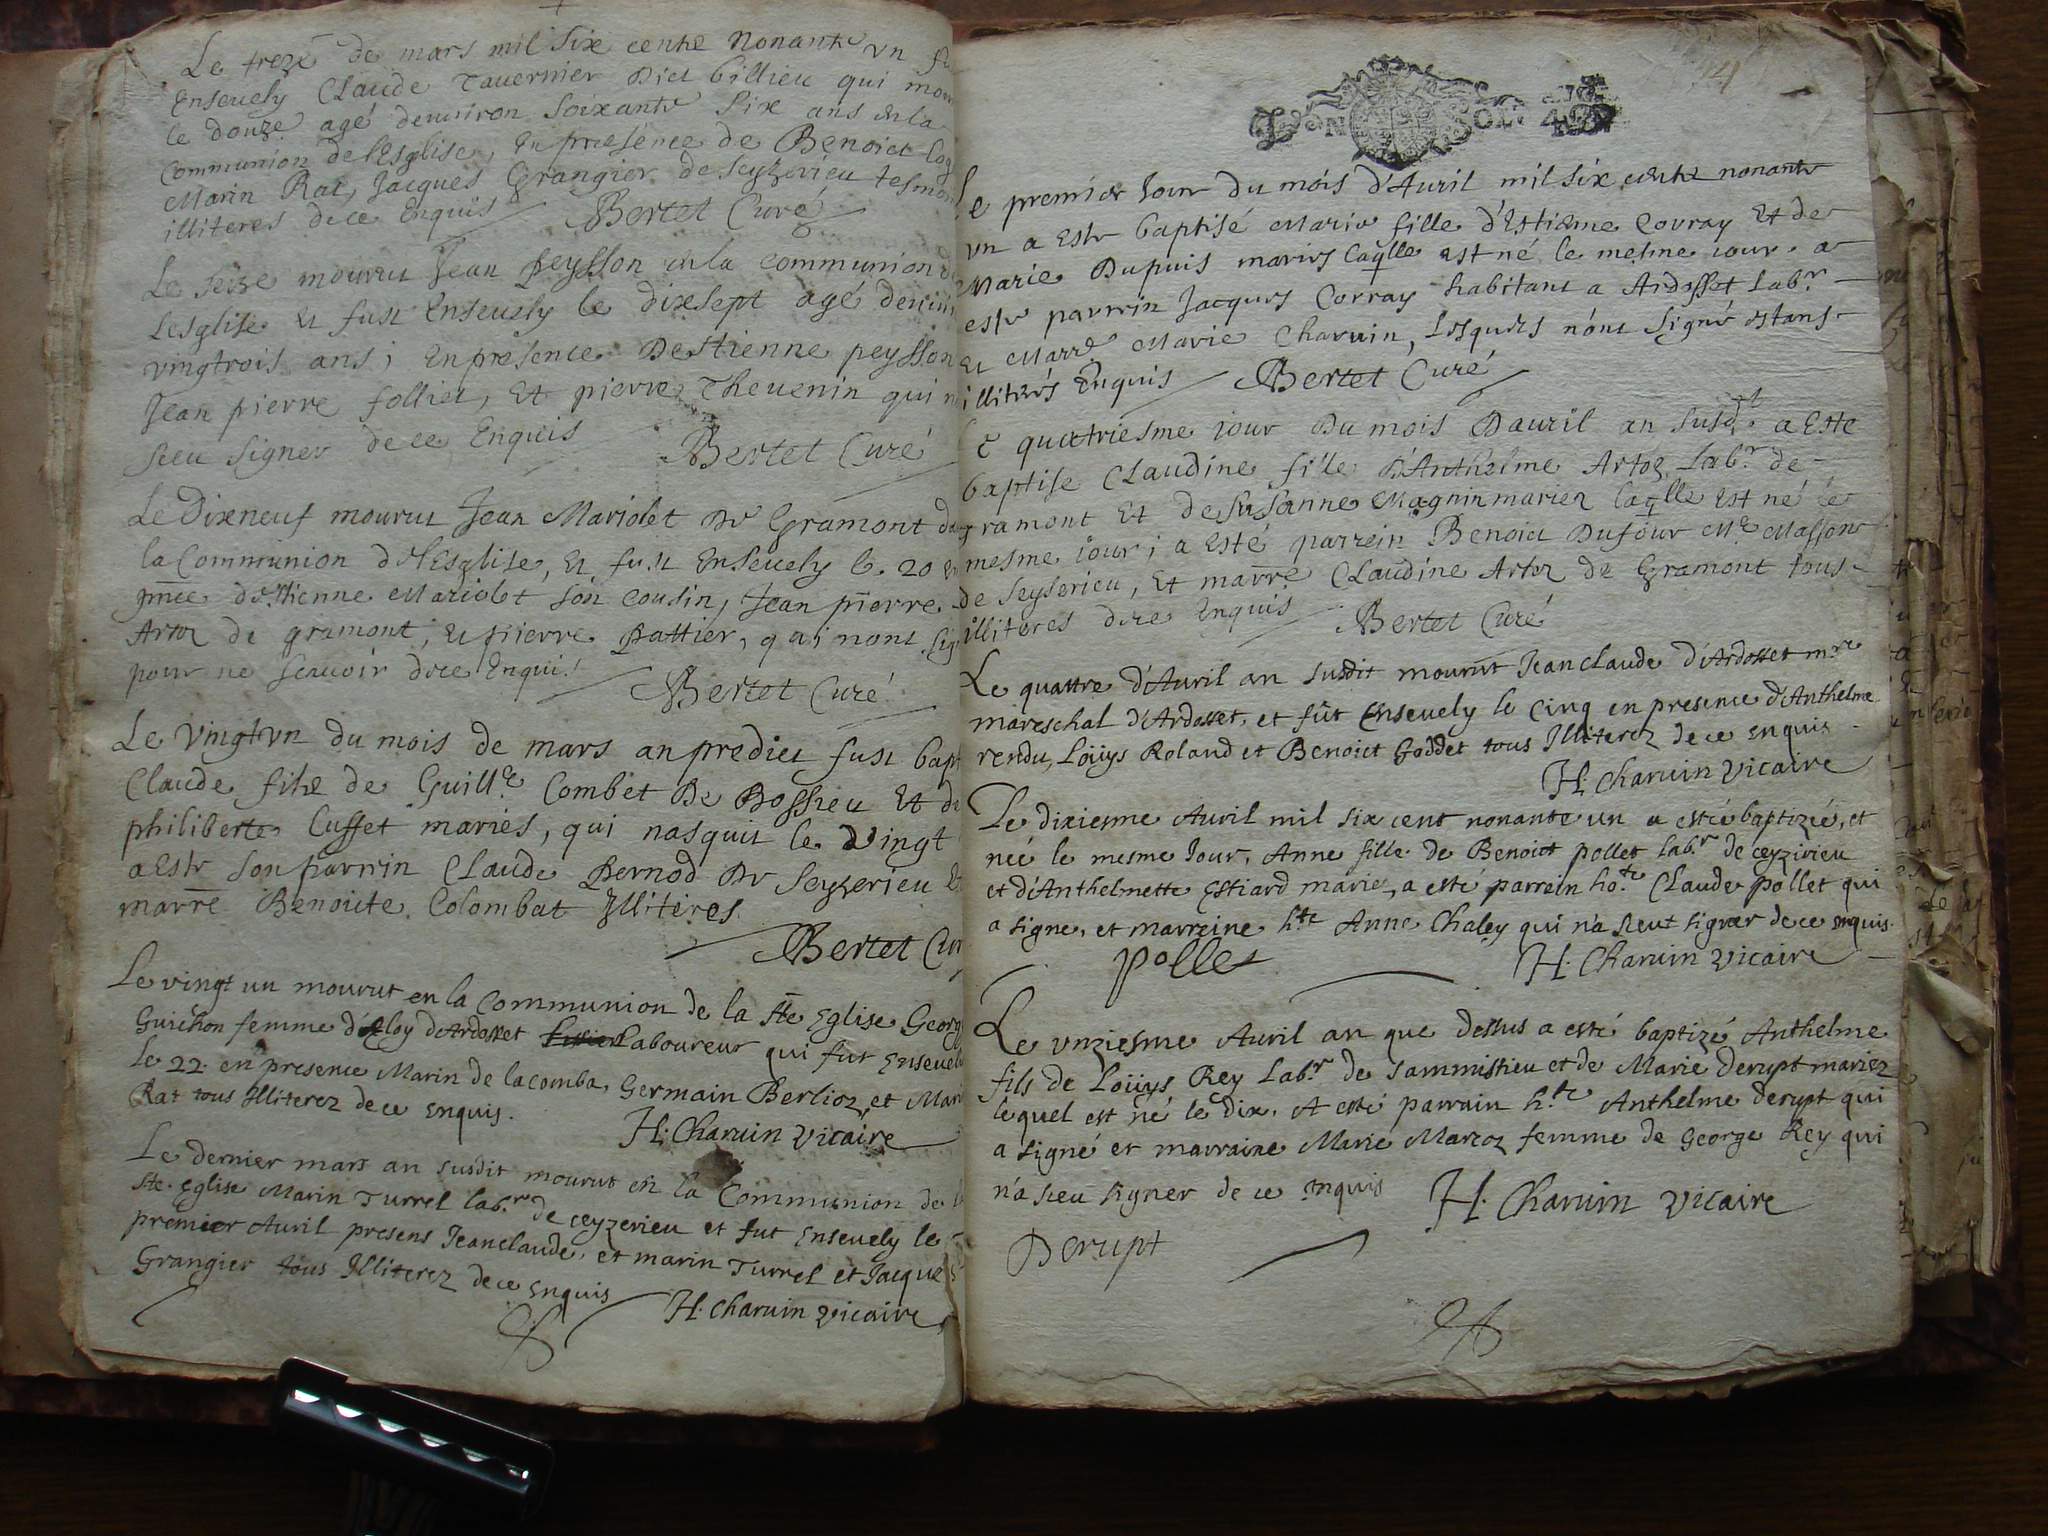 Le treze de mars mil six cents Nonante vn fu
Enseuely Claude Tauernier Dict billieu qui mou
le douze agé denuiron soixante six ans enla
Communion de l'Esglise, En presence de Benoict
Marin Rat, Jacques Grangier de Seyzerieu tesmo
illiteres de ce Enquis Bertet Curé
Le seize mourut Jean Peysson enla communion d
Lesglise et fust Enseuely le dixsept agé denui
vingtrois ans; En presence Destienne peysson
Jean pierre folliet, Et pierre Theuenin qui n
sceu signer de ce Enquis Bertet Curé
Le Dixneuf mourut Jean Mariolet De Gramont da
la Communion de l'Esglise, Et fust Enseuely le 20 en
pnce destienne Mariolet son cousin, Jean pierre
Artoz de gramont, Et pierre Pattier, qui nont sig
pour ne scauoir de ce Enqui! Bertet Curé
Le Vingtvn du mois de mars an predict fust bapt
Claude filz de Guille Combet De Bossieu Et de
philiberte Cusset mariés, qui nasquit le vingt
a Este son parrin Claude Bernod De Seyzerieu Et
marre Benoicte Colombat Jlliteres
Bertet Cur
Le vingt un mourut en la Communion de la Ste Eglise George
Guichon femme d'Eloy d'Ardosset Laboureur qui fut Enseueli
le 22. en presence Marin de lacomba, Germain Berlioz, et Mari
Rat tous Jlliterez de ce enquis.
H. Charuin Vicaire
Le dernier mars an susdit mourut en la Communion de l
Ste. Eglise Marin Turrel labr. de ceyzerieu et fut Enseuely le
premier Auril presens Jeanclaude, et marin Turrel et Jacques
Grangier tous Jlliterez de ce enquis
H. Charuin Vicaire
LYON SOL.
Le premier Jour du mois d'Auril mil six cents nonante
vn a Este baptisé Marie fille d'Estienne Corray Et de
Marie Dupuis mariés laqlle est né le mesme jour. a
este parrin Jacques Corray habitant a Ardosset Labr.
Et Marre Marie Charuin, Lesquels n'ont Signé estans
illiterés Enquis Bertet Curé
Le quatriesme jour Du mois D'auril an susdt. a Este
baptise Claudine fille d'Anthelme Artoz Labr. de
gramont Et de Susanne Magnin mariez laqlle Est né le
mesme jour; a Esté parrein Benoict Dufour Me Masson
de Seyserieu, Et marre Claudine Artoz de Gramont tous
illiteres de ce Enquis Bertet Curé
Le quattre d'Auril an susdit mourut Jeanclaude d'Ardosset mre
mareschal d'Ardosset, et fût Enseuely le cinq en presence d'Anthelme
rendu, Loüys Roland et Benoict Goddet tous Jlliterez de ce enquis
H. Charuin Vicaire
Le dixiesme Auril mil six cent nonante un a esté baptizée, et
née le mesme Jour, Anne fille de Benoict pollet labr. de ceyzirieu
et d'Anthelmette Estiard mariez, a esté parrein ho.te Claude Pollet qui
a signe, et marreine h.te Anne Chaley qui n'a sceut signer de ce enquis.
Pollet H. Charuin Vicaire
Le vnziesme Auril an que dessus a esté baptizé Anthelme
fils de Loüys Rey Labr. de sammistieu et de Marie derupt mariez
lequel est né le dix. A esté parrain h.te Anthelme derupt qui
a signé et marraine Marie Marcoz femme de George Rey qui
n'a sceu signer de ce enquis H. Charuin Vicaire
Derupt